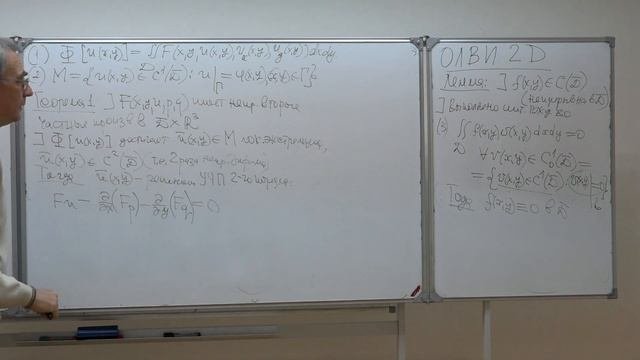 (1) Φ[u(x,y)] = ∬ F(x,y,u(x,y),u_x(x,y),u_y(x,y))dxdy.
D
(2) M={u(x,y)∈C¹(D̄): u|_Γ=φ(x,y),(x,y)∈Γ}
Теорема 1 ] F(x,y,u,p,q) имеет непр. вторые
частные произв в D̄×R³
] Φ[u(x,y)] достигает ū(x,y)∈M лок. экстремум,
ū(x,y)∈C²(D̄) (т.е. 2 раза непр. дифф.)
Тогда ū(x,y) – решение УЧП 2-го порядка:
F_u − ∂/∂x(F_p) − ∂/∂y(F_q) = 0
ОЛВИ 2D
Лемма: ] f(x,y)∈C(D̄)
(непрерывна в D̄)
] выполнено инт.
(3) ∬ f(x,y)v(x,y)dxdy=0
D
∀v(x,y)∈C¹₀(D̄)=
={v(x,y)∈C¹(D̄), v(x,y)|=0}
Тогда f(x,y)≡0 в D̄